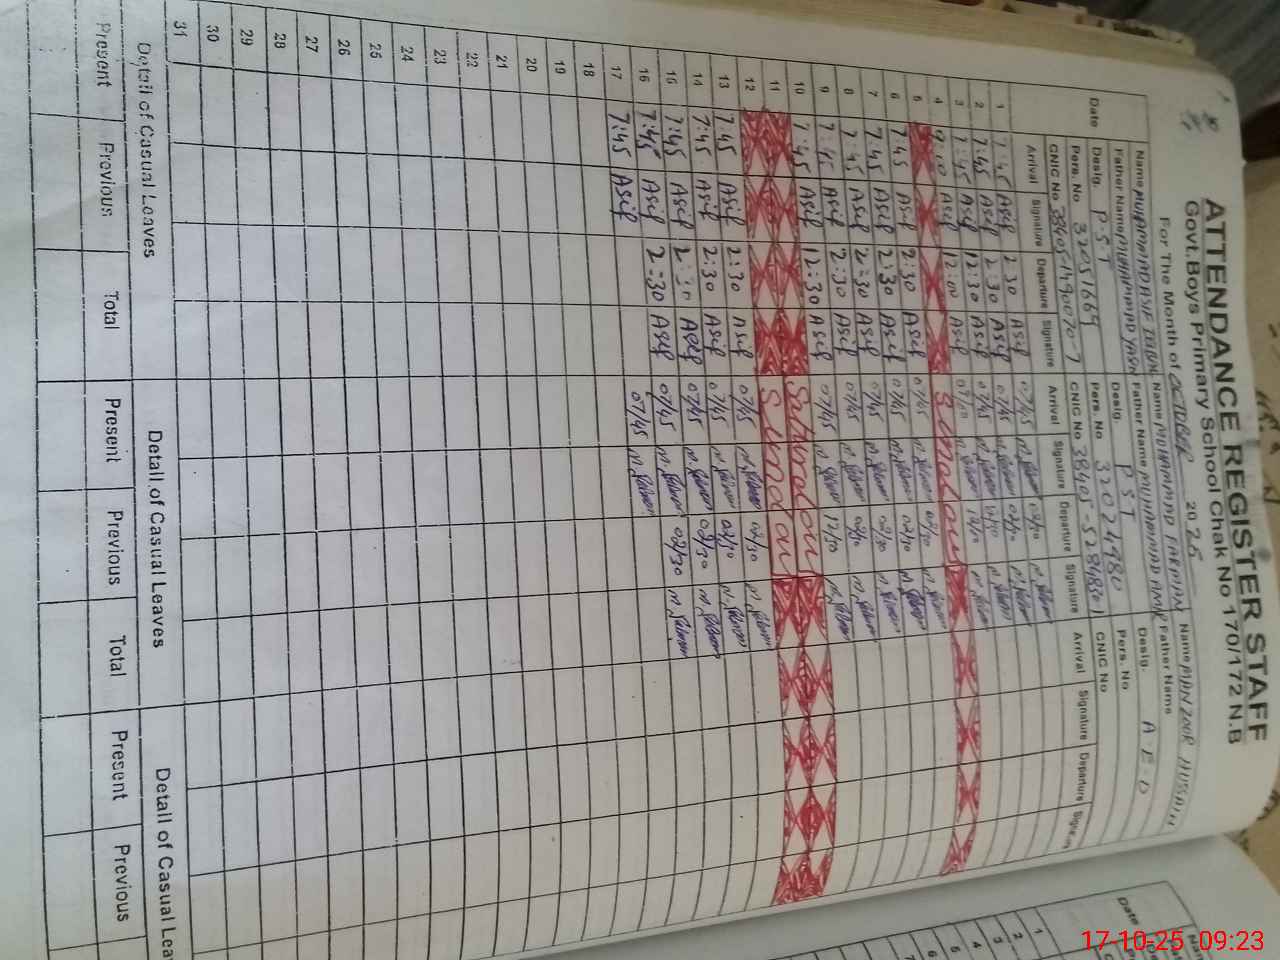 ATTENDANCE REGISTER STAFF
Govt. Boys Primary School Chak No 170/172 N.B
For The Month of OCTOBER 2025
Name MUHAMMAD ASIF IQBAL Name MUHAMMAD FARMAN Name MANZOOR HUSSAIN
Father Name MUHAMMAD YASIN Father Name MUHAMMAD AMIR Father Name
Date Desig. P.S.T Desig. PST Desig. A.E.O
Pers. No 32051669 Pers. No 32024980 Pers. No
CNIC No CNIC No CNIC No
Arrival Signature Departure Signature Arrival Signature Departure Signature Arrival Signature Departure Signature
1 7:45 Asif 2:30 Asif 07/45 02/30
2 7:45 Asif 2:30 Asif 07/45 02/30
3 7:45 Asif 12:30 Asif 07/45 12/30
4 Asif 12:00 Asif
5 Sunday
6 7:45 Asif 2:30 Asif 07/45 02/30
7 7:45 Asif 2:30 Asif 07/45 02/30
8 7:45 Asif 2:30 Asif 07/45 02/30
9 7:45 Asif 2:30 Asif 07/45
10 7:45 Asif 12:30 Asif 07/45 12/30
11 Saturday
12 Sunday
13 7:45 Asif 2:30 Asif 07/45 02/30
14 7:45 Asif 2:30 Asif 07/45 02/30
15 7:45 Asif 2:30 Asif 07/45 02/30
16 7:45 Asif 2:30 Asif 07/45 02/30
17 7:45 Asif 07/45
18
19
20
21
22
23
24
25
26
27
28
29
30
31
Detail of Casual Leaves Detail of Casual Leaves Detail of Casual Lea
Present Previous Total Present Previous Total Present Previous
Date
1
2
3
4
5
6
17-10-25 09:23